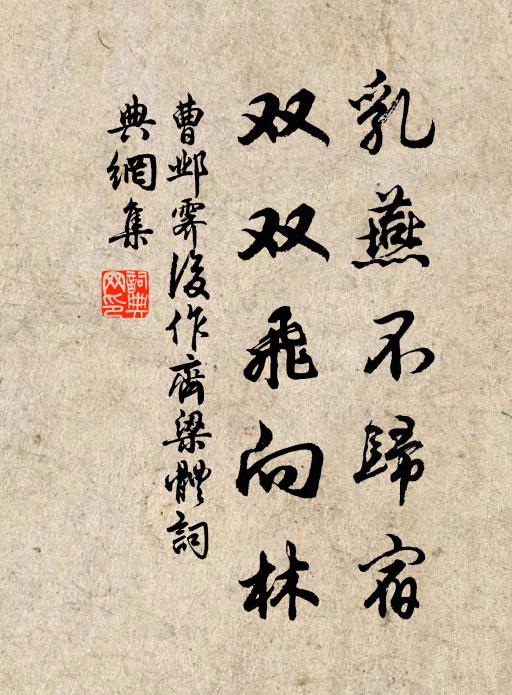 乳燕不歸宿
双双飛向林
曹邺霽後作齊梁體詞
典網集
詞典
网印